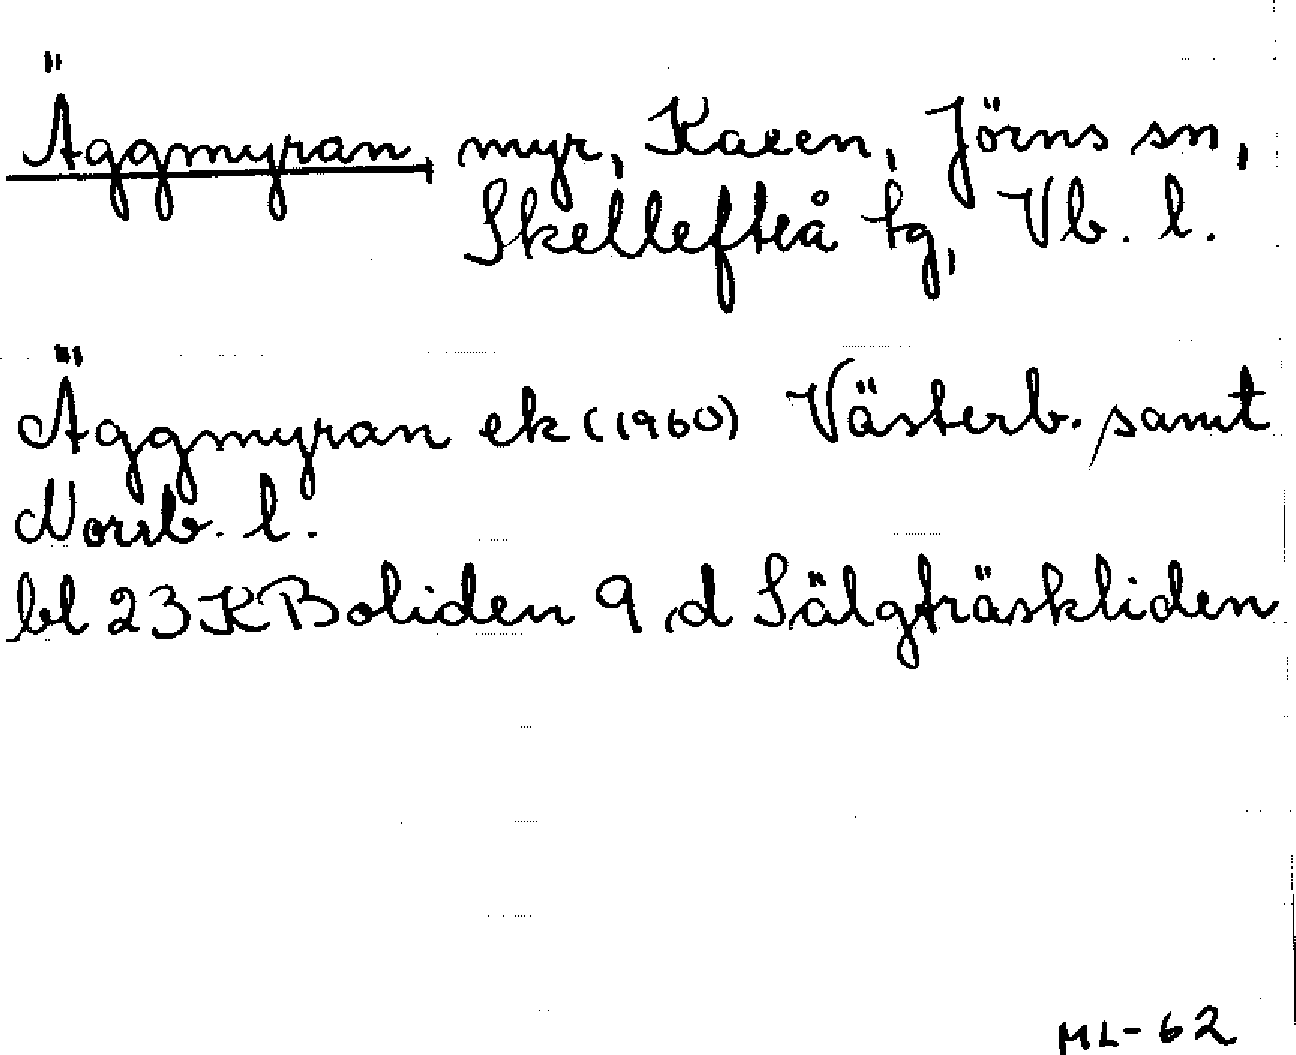 Äggmyran, myr, Kaeen, Jörns sn,
Skellefteå tg, Vb. l.
Äggmyran ek (1960) Västerb. samt
Norrb. l.
bl 23 K Boliden 9 d Sälgträskliden
ML-62